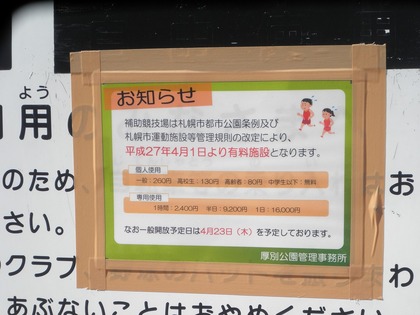 よう
用
お知らせ
補助競技場は札幌市都市公園条例及び
札幌市運動施設等管理規則の改定により、
平成27年4月1日より有料施設となります。
個人使用
一般:260円 高校生:130円 高齢者:80円 中学生以下:無料
専用使用
1時間:2,400円 半日:9,200円 1日:16,000円
なお一般開放予定日は4月23日(木)を予定しております。
厚別公園管理事務所
のため、
お
さい。
クラブ
わ
あぶないことはおやめください